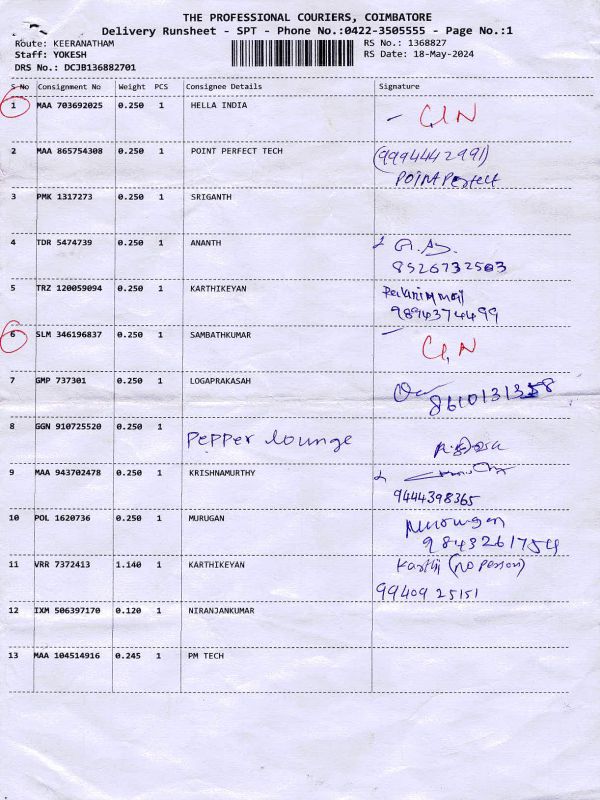 THE PROFESSIONAL COURIERS, COIMBATORE
Delivery Runsheet - SPT - Phone No.:0422-3505555 - Page No.:1
Route: KEERANATHAM RS No.: 1368827
Staff: YOKESH RS Date: 18-May-2024
DRS No.: DCJB136882701
S No Consignment No Weight PCS Consignee Details Signature
1 MAA 703692025 0.250 1 HELLA INDIA
2 MAA 865754308 0.250 1 POINT PERFECT TECH (9994442991)
POINT Perfect
3 PMK 1317273 0.250 1 SRIGANTH
4 TDR 5474739 0.250 1 ANANTH
8526732503
5 TRZ 120059094 0.250 1 KARTHIKEYAN
9894374499
6 SLM 346196837 0.250 1 SAMBATHKUMAR
7 GMP 737301 0.250 1 LOGAPRAKASAH
8610131358
8 GGN 910725520 0.250 1 Pepper lounge
9 MAA 943702478 0.250 1 KRISHNAMURTHY
9444398365
10 POL 1620736 0.250 1 MURUGAN Murugan
9843261754
11 VRR 7372413 1.140 1 KARTHIKEYAN Karthi (no person)
99409 25151
12 IXM 506397170 0.120 1 NIRANJANKUMAR
13 MAA 104514916 0.245 1 PM TECH